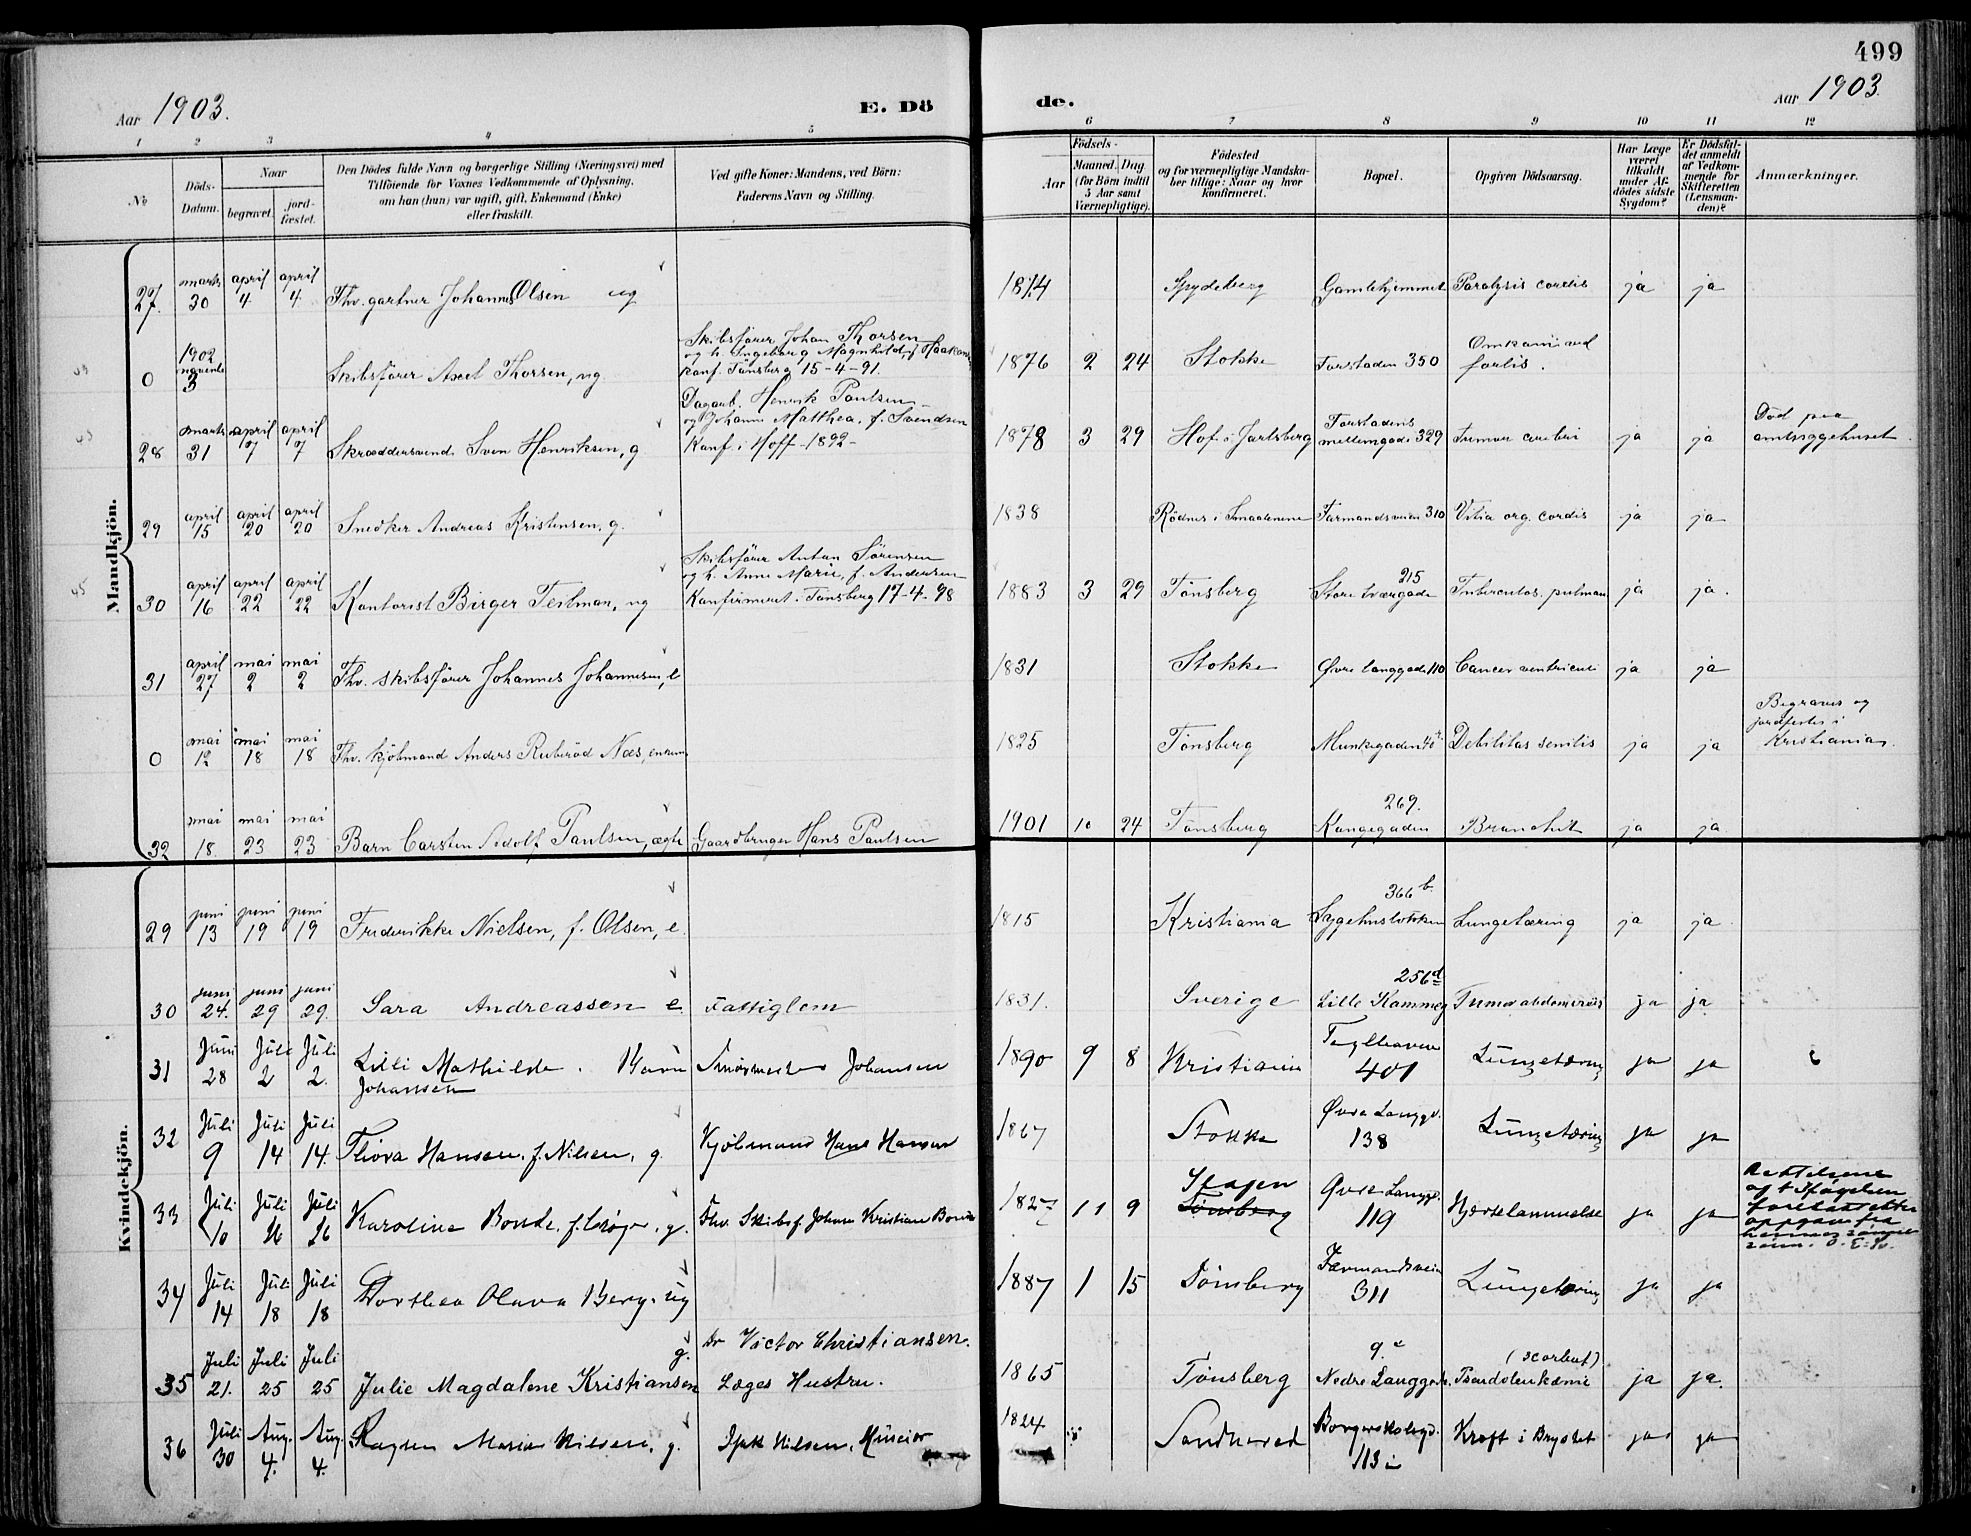 499
Aar 1903.
E. Dö de.
Aar 1903.
1 2 3 4 5 6 7 8 9 10 11 12
No
Döds-Datum.
Naar
begravet.
jord-fæstet.
Den Dödes fulde Navn og borgerlige Stilling (Næringsvei) med
Tilföiende for Voxnes Vedkommende af Oplysning,
om han (hun) var ugift, gift, Enkemand (Enke)
eller fraskilt.
Ved gifte Koner: Mandens, ved Börn:
Faderens Navn og Stilling.
Födsels-
Aar
Maaned. Dag
(for Börn indtil
5 Aar samt
Værnepligtige).
Födested
og for værnepligtige Mandska-
ber tillige: Naar og hvor
konfirmeret.
Bopæl.
Opgiven Dödsaarsag.
Har Læge
været
tilkaldt
under Af-
dödes sidste
Sygdom?
Er Dödsfal-
det anmeldt
af Vedkom-
mende for
Skifteretten
(Lensman-
den)?
Anmærkninger.
Mandkjön.
27. marts 30 april 4 april 4. Thv. gartner Johannes Olsen ug 1814 Spydeberg Gamlehjemmet Paralysis cordis ja ja
0 1902 3 Skibsfører Axel Thorsen, ug. Skibsfører Johan Thorsen
og h. Ingeborg Magnhild, f. Haakons
konf. Tønsberg 15-4-91.
1876 2 24 Stokke Forstaden 350 Omkom ved
forlis.
28 marts 31 april 7 april 7 Skræddersvend Sven Henriksen, g Dagarb. Henrik Paulsen
og Johanne Matthea, f. Svendsen
Konf. i Hoff 1892-
1878 3 29 Hof i Jarlsberg Forstadens
mellemgade 329 Tumor cerebri ja ja Död paa
amtssygehuset.
29 april 15 april 20 april 20 Snedker Andreas Kristensen, g. 1838 Rödnes i Smaalenene Færmandsveien 310 Vitia org. cordis ja ja
30 april 16 april 22 april 22 Kontorist Birger Teilman, ug Skibsfører Anton Sørensen
og h. Anne Marie, f. Andersen
Konfirmeret i Tønsberg 17-4-98
1883 3 29 Tønsberg 215
Store tværgade Tuberculos. pulmon ja ja.
31 april 27 mai 2 mai 2 Thv. skibsfører Johannes Johannesen, e 1831 Stokke Øvre langgade 110 Cancer ventriculi ja ja
0 mai 12 mai 18 mai 18 Thv. kjöbmand Anders Ruberöd Næs, enkem 1825 Tønsberg Munkegaden Debilitas senilis ja ja Begraves og
jordfestes i
Kristiania.
32 mai 18 mai 23 mai 23 Barn Carsten Adolf Paulsen, ægte Gaardbruger Hans Paulsen 1901 10 24 Tønsberg 269.
Kongegaden Bronchit ja ja
Kvindekjön.
29 juni 13 juni 19 juni 19 Frederikke Nielsen, f. Olsen, e. 1815 Kristiania 366 b.
Sygehusløkken Lungetæring ja ja
30 juni 24. juni 29 juni 29. Sara Andreassen e Fattiglem 1831. Sverige 256 d
Lille Kammeg Tumor abdominis ja ja
31 Juni 28 Juli 2 Juli 2. Lilli Mathilde. Barn
Johansen Johansen 1890 9 8 Kristiania 401 Lungetæring ja ja
32 Juli 9 Juli 14 Juli 14. Thora Hansen, f. Nilsen, g. Kjöbmand Hans Hansen 1867 Stokke Øvre Langgd.
138 Lungetæring ja ja
33 Juli 10 Juli 16 Juli 16 Karoline Bonde, f. g. Thv. Skibsf. Johan Kristian Bonde 1827 11 9 Skagen
Tønsberg Øvre Langgd.
119 Hjertelammelse ja ja Rettelsene
34 Juli 14 Juli 18 Juli 18 Dorthea Olava Berg, ug 1887 1 15 Tønsberg Færmandsveien
311 Lungetæring ja ja
35 Juli 21. Juli 25 Juli 25 Julie Magdalene Kristiansen g. Dr Victor Christiansen.
Læges Hustru.
1865 Tønsberg 9.
Nedre Langgade. (scorbut)
Pseudoleukæmie ja ja.
36 Juli 30 Aug. 4. Aug. 4. Maria Nilsen, g. Nilsen, 1824 Sandherred Borgerskolegd.
113 Kræft i Brystet ja ja